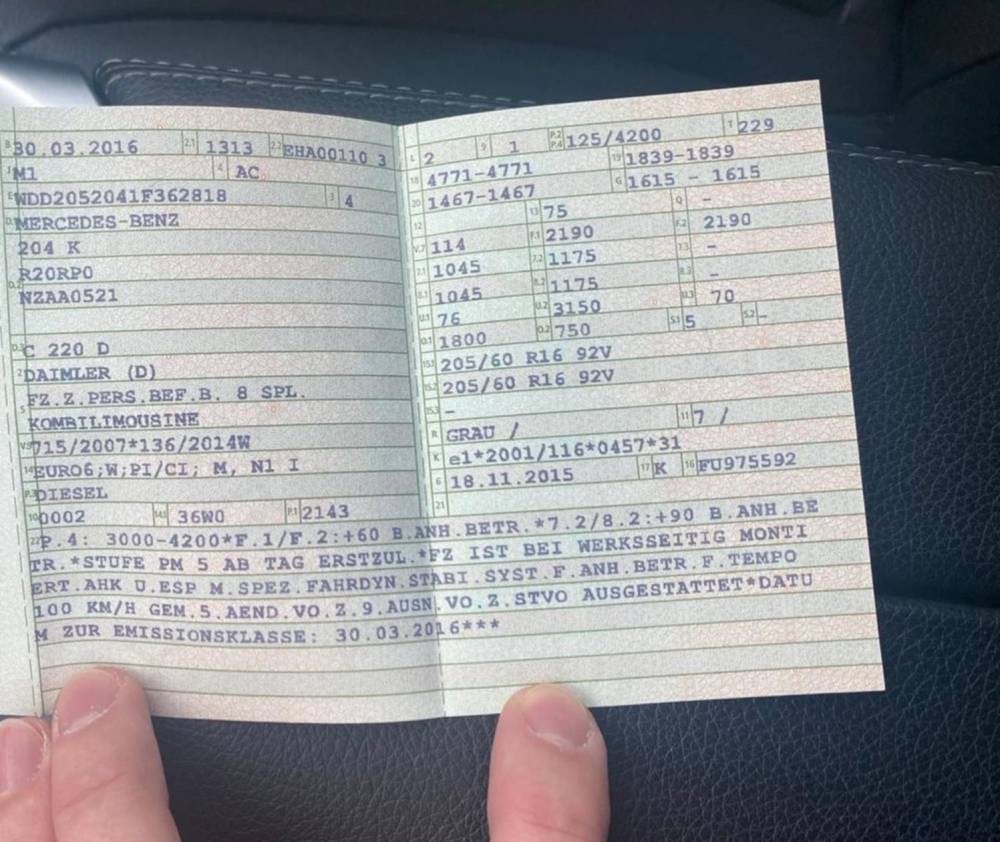 B 30.03.2016 2.1 1313 2.2 EHA00110 3
J M1 4 AC
E WDD2052041F362818 3 4
D.1 MERCEDES-BENZ
204 K
D.2 R20RP0
NZAA0521
D.3 C 220 D
2 DAIMLER (D)
5 FZ.Z.PERS.BEF.B. 8 SPL.
KOMBILIMOUSINE
V.9 715/2007*136/2014W
14 EURO6;W;PI/CI; M, N1 I
P.3 DIESEL
10 0002 14.1 36W0 P.1 2143
L 2 9 1 P.2 P.4 125/4200 T 229
18 4771-4771 19 1839-1839
20 1467-1467 G 1615 - 1615
12 13 75 Q -
V.7 114 F.1 2190 F.2 2190
7.1 1045 7.2 1175 7.3 -
8.1 1045 8.2 1175 8.3 -
U.1 76 U.2 3150 U.3 70
O.1 1800 O.2 750 S.1 5 S.2 -
15.1 205/60 R16 92V
15.2 205/60 R16 92V
15.3 -
R GRAU / 11 7 /
K e1*2001/116*0457*31
6 18.11.2015 17 K 16 FU975592
21
22 P.4: 3000-4200*F.1/F.2:+60 B.ANH.BETR.*7.2/8.2:+90 B.ANH.BE
TR.*STUFE PM 5 AB TAG ERSTZUL.*FZ IST BEI WERKSSEITIG MONTI
ERT.AHK U.ESP M.SPEZ.FAHRDYN.STABI.SYST.F.ANH.BETR.F.TEMPO
100 KM/H GEM.5.AEND.VO.Z.9.AUSN.VO.Z.STVO AUSGESTATTET*DATU
M ZUR EMISSIONSKLASSE: 30.03.2016***